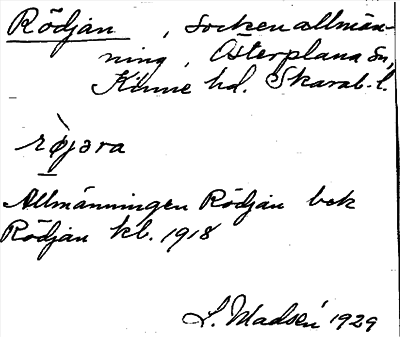 Rödjan, sockenallmän-
ning, Österplana sn,
Kinne hd. Skarab. l.
rø̀jara
Allmänningen Rödjan bek
Rödjan kb. 1918
L. Madsén 1929